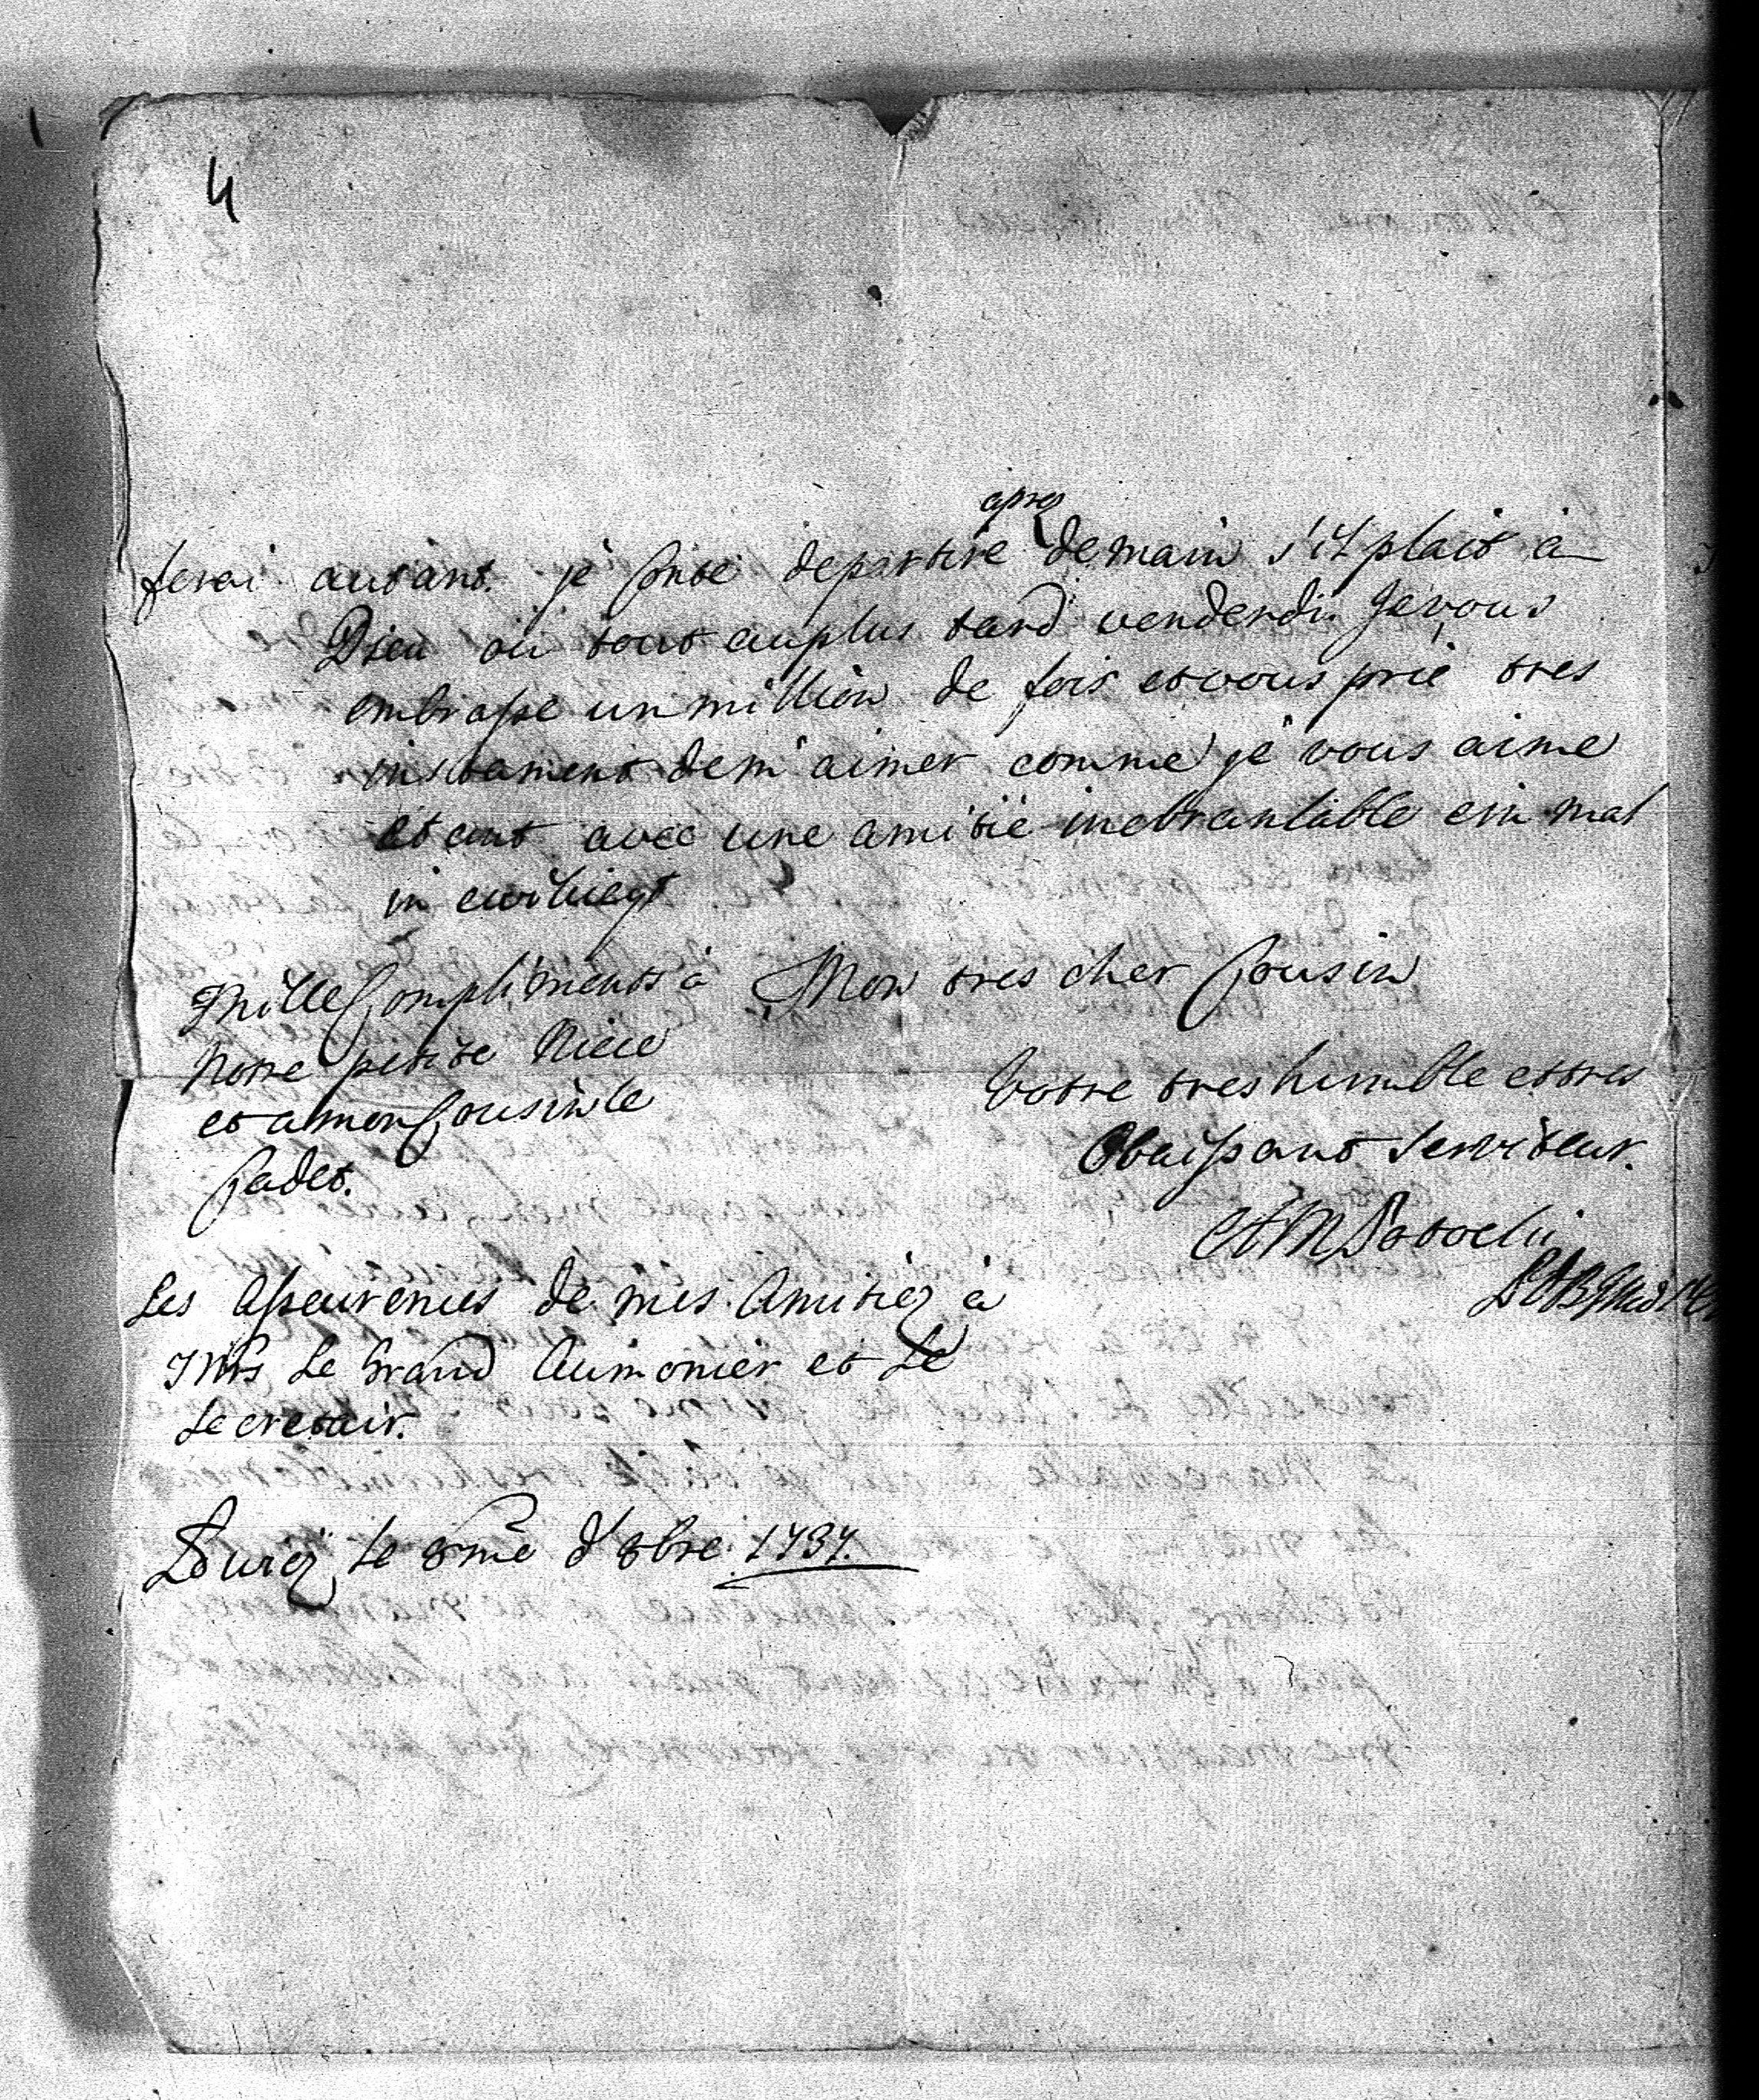 4
après
ferai autant. je conte departire demain s'il plait à
Dieu où tout auplus tard venderdi. Je vous
embrasse un million de fois et vous prie tres
instament de m'aimer comme je vous aime
etant avec une amitié inebranlable ein mal
in ewikeyt
Mon tres cher Cousin
Votre tres humble et tres
Obeissant serviteur.
Mille Compliments à
notre petite Niece
et a mon Cousin le
Cadet.
Les Asseurences de mes Amitiez à
Mrs Le Grand Aumonier et Le
Secretair.
le 8me d' 8bre 1737.